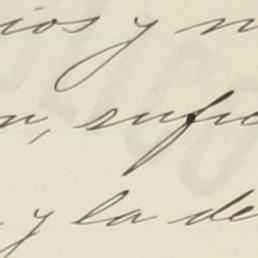 ios y n
n, sufic
y la de